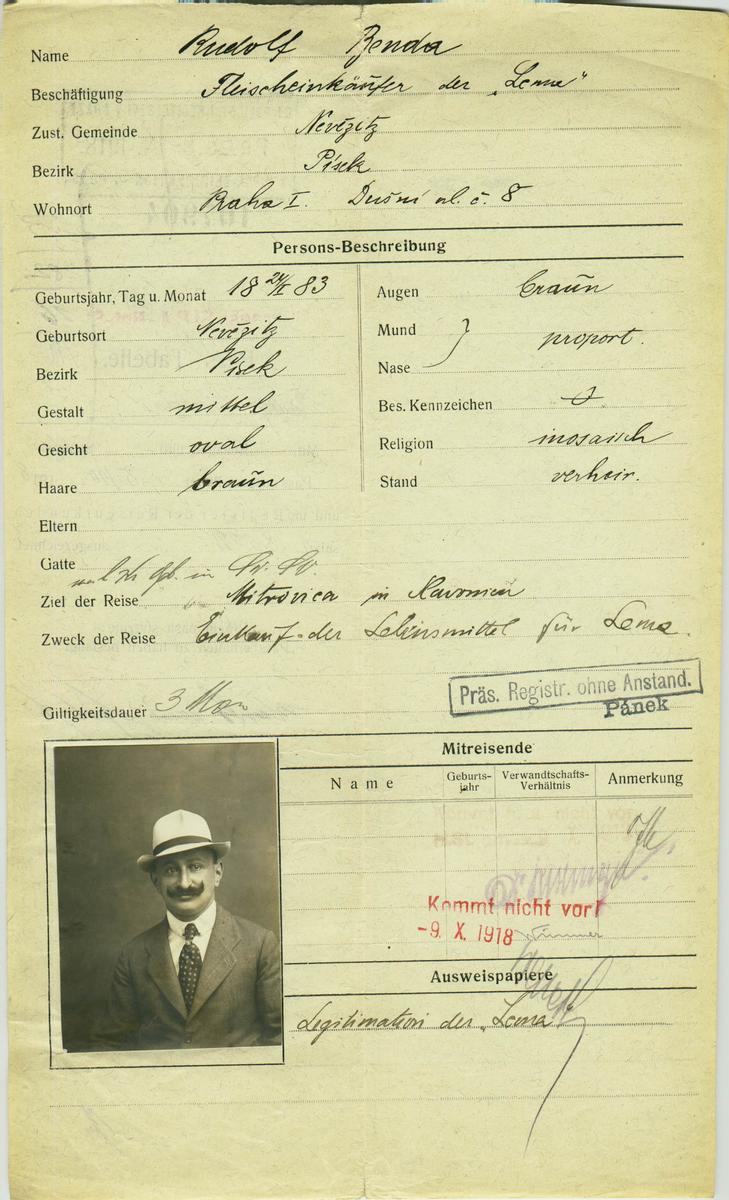 Name Rudolf Benda
Beschäftigung Fleischeinkäufer der „Lema"
Zust. Gemeinde Nevězitz
Bezirk Písek
Wohnort Praha I. Dušní ul. č. 8
Persons-Beschreibung
Geburtsjahr, Tag u. Monat 18 24/I 83
Geburtsort Nevězitz
Bezirk Písek
Gestalt mittel
Gesicht oval
Haare braun
Augen braun
Mund
Nase proport.
Bes. Kennzeichen
Religion mosaisch
Stand verheir.
Eltern
Gatte
in
Ziel der Reise Mitrovica in Slavonien
Zweck der Reise Einkauf der Lebensmittel für Lema.
Giltigkeitsdauer 3 Mon
Präs. Registr. ohne Anstand.
Pánek
Mitreisende
Name Geburts-jahr Verwandtschafts-Verhältnis Anmerkung
Kommt nicht vor!
-9. X. 1918
Ausweispapiere
Legitimation der „Lema"